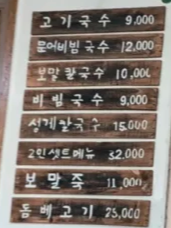 고기국수 9,000
문어비빔국수 12,000
보말칼국수 10,000
비빔국수 9,000
성게칼국수 15,000
2인셋트메뉴 32,000
보말죽 11,000
돔베고기 25,000